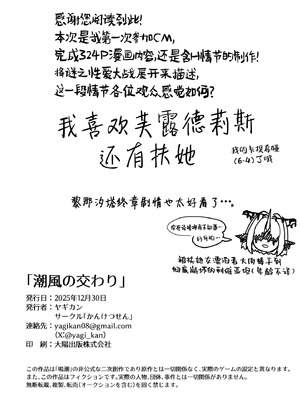 感谢您阅读到此!
本次是我第一次参加CM,
完成324P漫画内容,还是含H情节的制作!
将谜之性爱大战展开来描述,
这一段情节各位观众感觉如何?
我喜欢芙露德莉斯
还有扶她
我的卡提希娅
(6-4)了哦
黎那汐塔终章剧情也太好看了…。
「潮風の交わり」
発行日:2025年12月30日
発行者:ヤギカン
サークル「かんけつせん」
連絡先:yagikan08@gmail.com
(X:@yagi_kan)
印 刷:大陽出版株式会社
この作品は「鳴潮」の非公式な二次創作であり原作とは一切関係なく、実際のゲームの設定と異なります。
また、この作品はフィクションです。実際の人物、団体、事件とは一切関係がありません。
無断転載、複製、転売(オークションを含む)を固く禁じます。